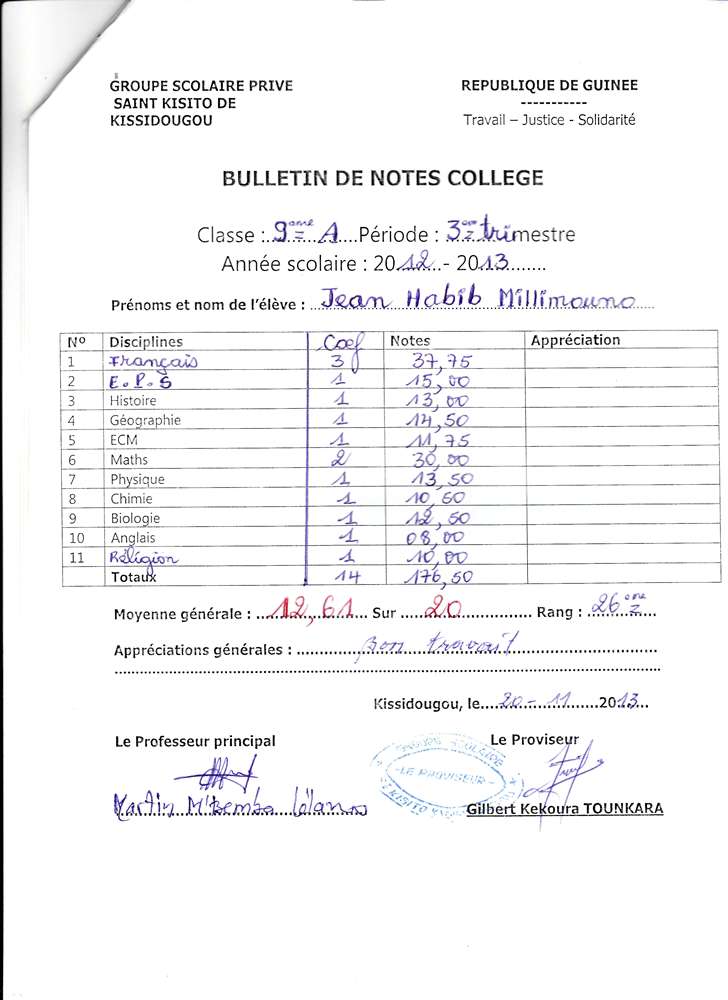 GROUPE SCOLAIRE PRIVE
SAINT KISITO DE
KISSIDOUGOU
REPUBLIQUE DE GUINEE
-----------
Travail – Justice - Solidarité
BULLETIN DE NOTES COLLEGE
Classe : 9ème A Période : 3è trimestre
Année scolaire : 2012 - 2013
Prénoms et nom de l'élève : Jean Habib Millimouno
N° Disciplines Coef Notes Appréciation
1 Français 3 37,75
2 E.P.S 1 15,00
3 Histoire 1 13,00
4 Géographie 1 14,50
5 ECM 1 11,75
6 Maths 2 30,00
7 Physique 1 13,50
8 Chimie 1 10,50
9 Biologie 1 12,50
10 Anglais 1 08,00
11 Réligion 1 10,00
Totaux 14 176,50
Moyenne générale : 12,61 Sur 20 Rang : 26ème
Appréciations générales : Bon travail
Kissidougou, le 20-11 2013
Le Professeur principal
Le Proviseur
GROUPE SCOLAIRE
-LE PROVISEUR-
Martin M'Bemba
Gilbert Kekoura TOUNKARA